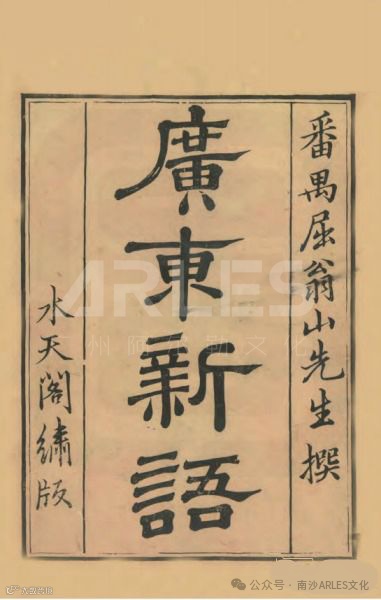 番禺屈翁山先生撰
廣東新語
水天閣繡版
ARLES
公众号 · 南沙ARLES文化